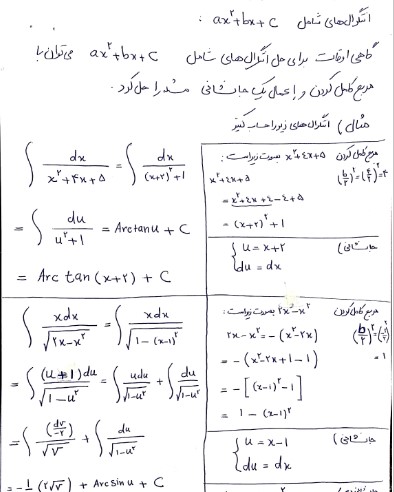 انتگرال‌های شامل ax²+bx+c :
گاهی اوقات برای حل انتگرال‌های شامل ax²+bx+c می‌توان با
مربع کامل کردن و اعمال یک جانشانی مسئله را حل کرد.
مثال) انتگرال‌های زیر را حساب کنید
∫ dx/(x²+۴x+۵) = ∫ dx/((x+۲)²+1)
= ∫ du/(u²+1) = Arctanu + C
= Arc tan (x+۲) + C
مربع کامل کردن x²+۴x+۵ بصورت زیر است:
x²+۴x+۵ (b/۲)²=(۴/۲)²=۴
= x²+۴x+۴-۴+۵
= (x+۲)²+1
جانشانی) { u = x+۲
du = dx
∫ xdx/√(۲x-x²) = ∫ xdx/√(1-(x-1)²)
= ∫ (u+1)du/√(1-u²) = ∫ udu/√(1-u²) + ∫ du/√(1-u²)
= ∫ (dv/-۲)/√v + ∫ du/√(1-u²)
= -1/۲ (۲√v) + Arcsinu + C
مربع کامل کردن ۲x-x² بصورت زیر است:
۲x-x² = -(x²-۲x)
= -(x²-۲x+1-1)
= -[(x-1)²-1]
= 1-(x-1)²
جانشانی) { u = x-1
du = dx